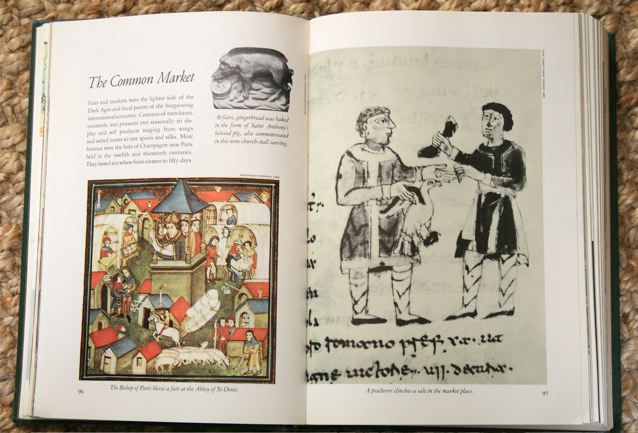 The Common Market
Fairs and markets were the lighter side of the
Dark Ages and focal points of the burgeoning
international economy. Caravans of merchants,
minstrels, and peasants met seasonally to dis-
play and sell products ranging from songs
and salted meats to rare spices and silks. Most
famous were the fairs of Champagne near Paris
held in the twelfth and thirteenth centuries.
They lasted anywhere from sixteen to fifty days.
At fairs, gingerbread was baked
in the form of Saint Anthony's
beloved pig, also commemorated
in this stone church-stall carving.
The Bishop of Paris blesses a fair at the Abbey of St-Denis.
96
A poulterer clinches a sale in the market place.
97